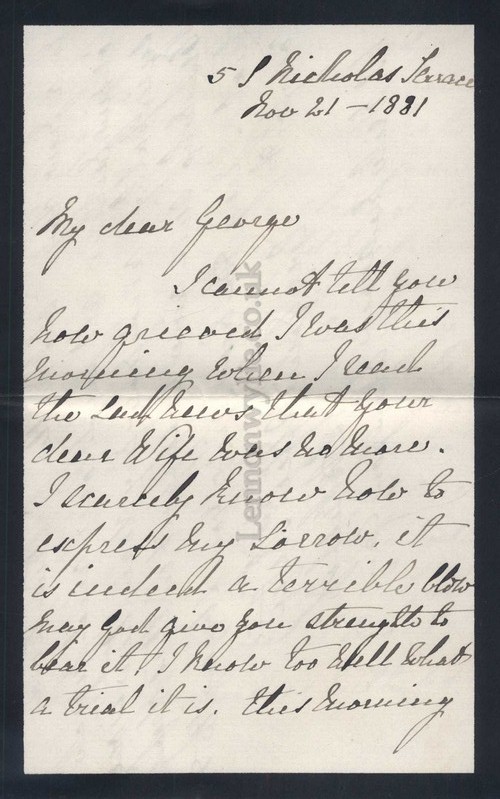 5 S Nicholas Terrace
Nov 21 - 1881
My dear George
I cannot tell you
how grieved I was this
morning when I read
the sad news that your
dear Wife was no more.
I scarcely know how to
express my sorrow, it
is indeed a terrible blow
may God give you strength to
bear it. I know too well what
a trial it is. this morning
Lennonwylie.co.uk